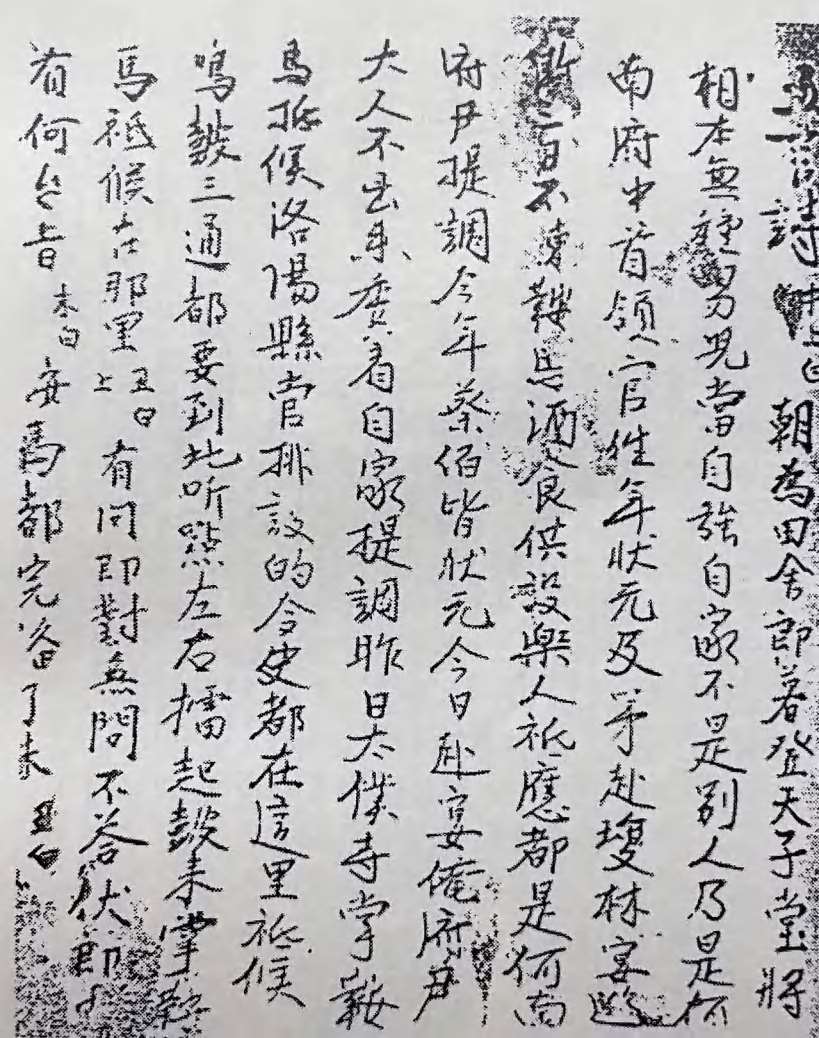 詩 末上白 朝為田舍郎暮登天子堂將
相本無種男兒當自強自家不是別人乃是河
南府中首領官住年狀元及第赴瓊林宴遊
街不凍鞍馬酒食供設樂人祗應都是河南
府尹提調今年蔡伯皆狀元今日赴宴俺府尹
大人不出來委着自家提調昨日太僕寺掌鞍
馬祗候洛陽縣官排設的令史都在這里祗候
鳴鼓三通都要到此听點左右擂起鼓來掌鞍
馬祗候在那里 丑上白 有问即對無問不答伏
有何台旨 末白 安馬都完俻了未 丑白